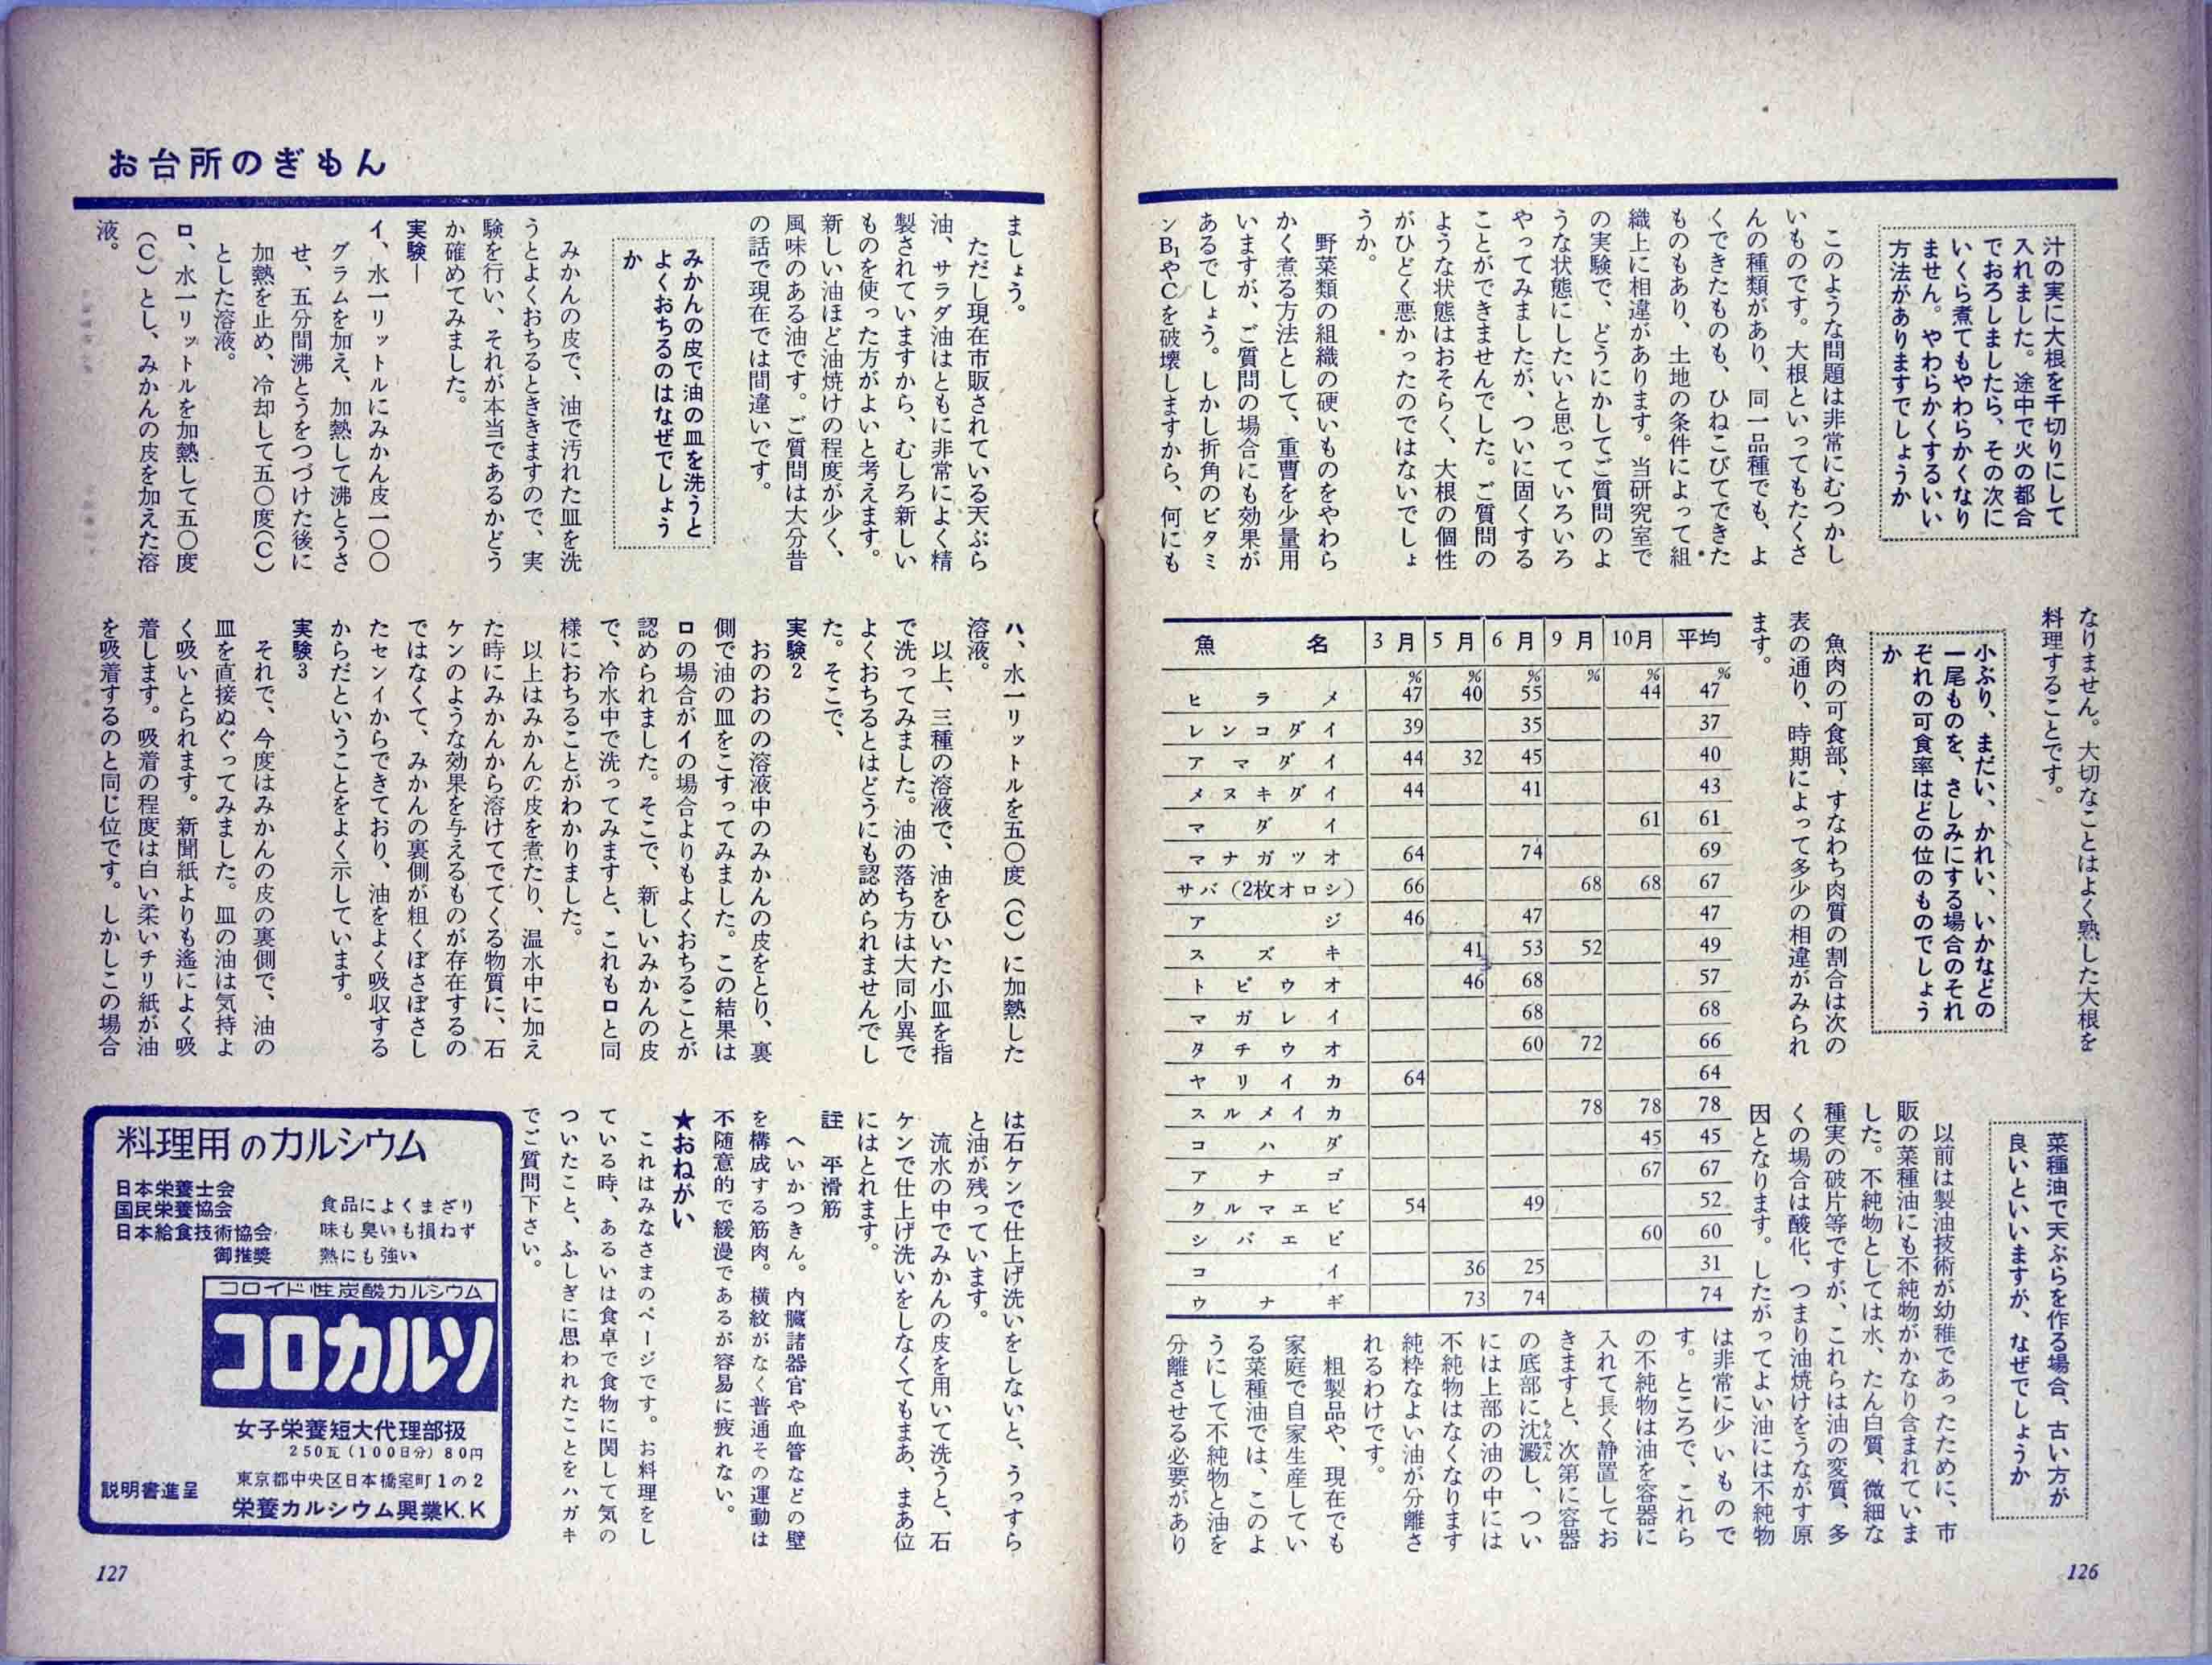 汁の実に大根を千切りにして
入れました。途中で火の都合
でおろしましたら、その次に
いくら煮てもやわらかくなり
ません。やわらかくするいい
方法がありますでしょうか
このような問題は非常にむつかし
いものです。大根といってもたくさ
んの種類があり、同一品種でも、よ
くできたものも、ひねこびてできた
ものもあり、土地の条件によって組
織上に相違があります。当研究室で
の実験で、どうにかしてご質問のよ
うな状態にしたいと思っていろいろ
やってみましたが、ついに固くする
ことができませんでした。ご質問の
ような状態はおそらく、大根の個性
がひどく悪かったのではないでしょ
うか。
野菜類の組織の硬いものをやわら
かく煮る方法として、重曹を少量用
いますが、ご質問の場合にも効果が
あるでしょう。しかし折角のビタミ
ンB₁やCを破壊しますから、何にも
なりません。大切なことはよく熟した大根を
料理することです。
小ぶり、まだい、かれい、いかなどの
一尾ものを、さしみにする場合のそれ
ぞれの可食率はどの位のものでしょう
か
魚肉の可食部、すなわち肉質の割合は次の
表の通り、時期によって多少の相違がみられ
ます。
魚名 3月 5月 6月 9月 10月 平均
% % % % % %
ヒラメ 47 40 55 44 47
レンコダイ 39 35 37
アマダイ 44 32 45 40
メスキダイ 44 41 43
マダイ 61 61
マナガツオ 64 74 69
サバ(2枚オロシ) 66 68 68 67
アジ 46 47 47
スズキ 41 53 52 49
トビウオ 46 68 57
マガレイ 68 68
タチウオ 60 72 66
ヤリイカ 64 64
スルメイカ 78 78 78
コハダ 45 45
アナゴ 67 67
クルマエビ 54 49 52
シバエビ 60 60
コイ 36 25 31
ウナギ 73 74 74
菜種油で天ぷらを作る場合、古い方が
良いといいますが、なぜでしょうか
以前は製油技術が幼稚であったために、市
販の菜種油にも不純物がかなり含まれていま
した。不純物としては水、たん白質、微細な
種実の破片等ですが、これらは油の変質、多
くの場合は酸化、つまり油焼けをうながす原
因となります。したがってよい油には不純物
は非常に少いもので
す。ところで、これら
の不純物は油を容器に
入れて長く静置してお
きますと、次第に容器
の底部に沈澱し、つい
には上部の油の中には
不純物はなくなります
純粋なよい油が分離さ
れるわけです。
粗製品や、現在でも
家庭で自家生産してい
る菜種油では、このよ
うにして不純物と油を
分離させる必要があり
126
お台所のぎもん
ましょう。
ただし現在市販されている天ぷら
油、サラダ油はともに非常によく精
製されていますから、むしろ新しい
ものを使った方がよいと考えます。
新しい油ほど油焼けの程度が少く、
風味のある油です。ご質問は大分昔
の話で現在では間違いです。
みかんの皮で油の皿を洗うと
よくおちるのはなぜでしょう
か
みかんの皮で、油で汚れた皿を洗
うとよくおちるとききますので、実
験を行い、それが本当であるかどう
か確めてみました。
実験1
イ、水一リットルにみかん皮一〇〇
グラムを加え、加熱して沸とうさ
せ、五分間沸とうをつづけた後に
加熱を止め、冷却して五〇度(C)
とした溶液。
ロ、水一リットルを加熱して五〇度
(C)とし、みかんの皮を加えた溶
液。
ハ、水一リットルを五〇度(C)に加熱した
溶液。
以上、三種の溶液で、油をひいた小皿を指
で洗ってみました。油の落ち方は大同小異で
よくおちるとはどうにも認められませんでし
た。そこで、
実験2
おのおのの溶液中のみかんの皮をとり、裏
側で油の皿をこすってみました。この結果は
ロの場合がイの場合よりもよくおちることが
認められました。そこで、新しいみかんの皮
で、冷水中で洗ってみますと、これもロと同
様におちることがわかりました。
以上はみかんの皮を煮たり、温水中に加え
た時にみかんから溶けてでてくる物質に、石
ケンのような効果を与えるものが存在するの
ではなくて、みかんの裏側が粗くぼさぼさし
たセンイからできており、油をよく吸収する
からだということをよく示しています。
実験3
それで、今度はみかんの皮の裏側で、油の
皿を直接ぬぐってみました。皿の油は気持よ
く吸いとられます。新聞紙よりも遙によく吸
着します。吸着の程度は白い柔いチリ紙が油
を吸着するのと同じ位です。しかしこの場合
は石ケンで仕上げ洗いをしないと、うっすら
と油が残っています。
流水の中でみかんの皮を用いて洗うと、石
ケンで仕上げ洗いをしなくてもまあ、まあ位
にはとれます。
註 平滑筋
へいかつきん。内臓諸器官や血管などの壁
を構成する筋肉。横紋がなく普通その運動は
不随意的で緩漫であるが容易に疲れない。
★おねがい
これはみなさまのページです。お料理をし
ている時、あるいは食卓で食物に関して気の
ついたこと、ふしぎに思われたことをハガキ
でご質問下さい。
料理用のカルシウム
日本栄養士会
国民栄養協会
日本給食技術協会
御推奬
食品によくまざり
味も臭いも損ねず
熱にも強い
コロイド性炭酸カルシウム
コロカルソ
女子栄養短大代理部扱
250瓦(100日分)80円
東京都中央区日本橋室町1の2
説明書進呈
栄養カルシウム興業K.K
127